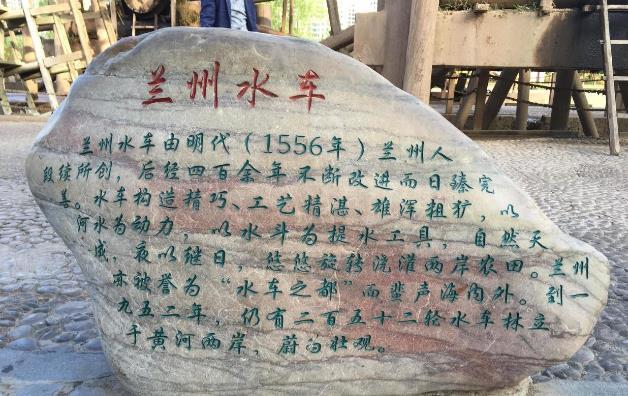 兰州水车
兰州水车由明代（1556年）兰州人
段续所创，后经四百余年不断改进而日臻完
善。水车构造精巧、工艺精湛、雄浑粗犷，以
河水为动力，以水斗为提水工具，自然天
成，夜以继日，悠悠旋转浇灌两岸农田。兰州
亦被誉为“水车之都”而蜚声海内外。到一
九五二年，仍有二百五十二轮水车林立
于黄河两岸，蔚为壮观。